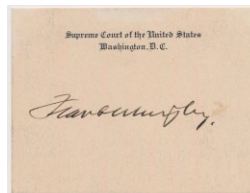 Supreme Court of the United States
Washington, D.C.
Frank Murphy.